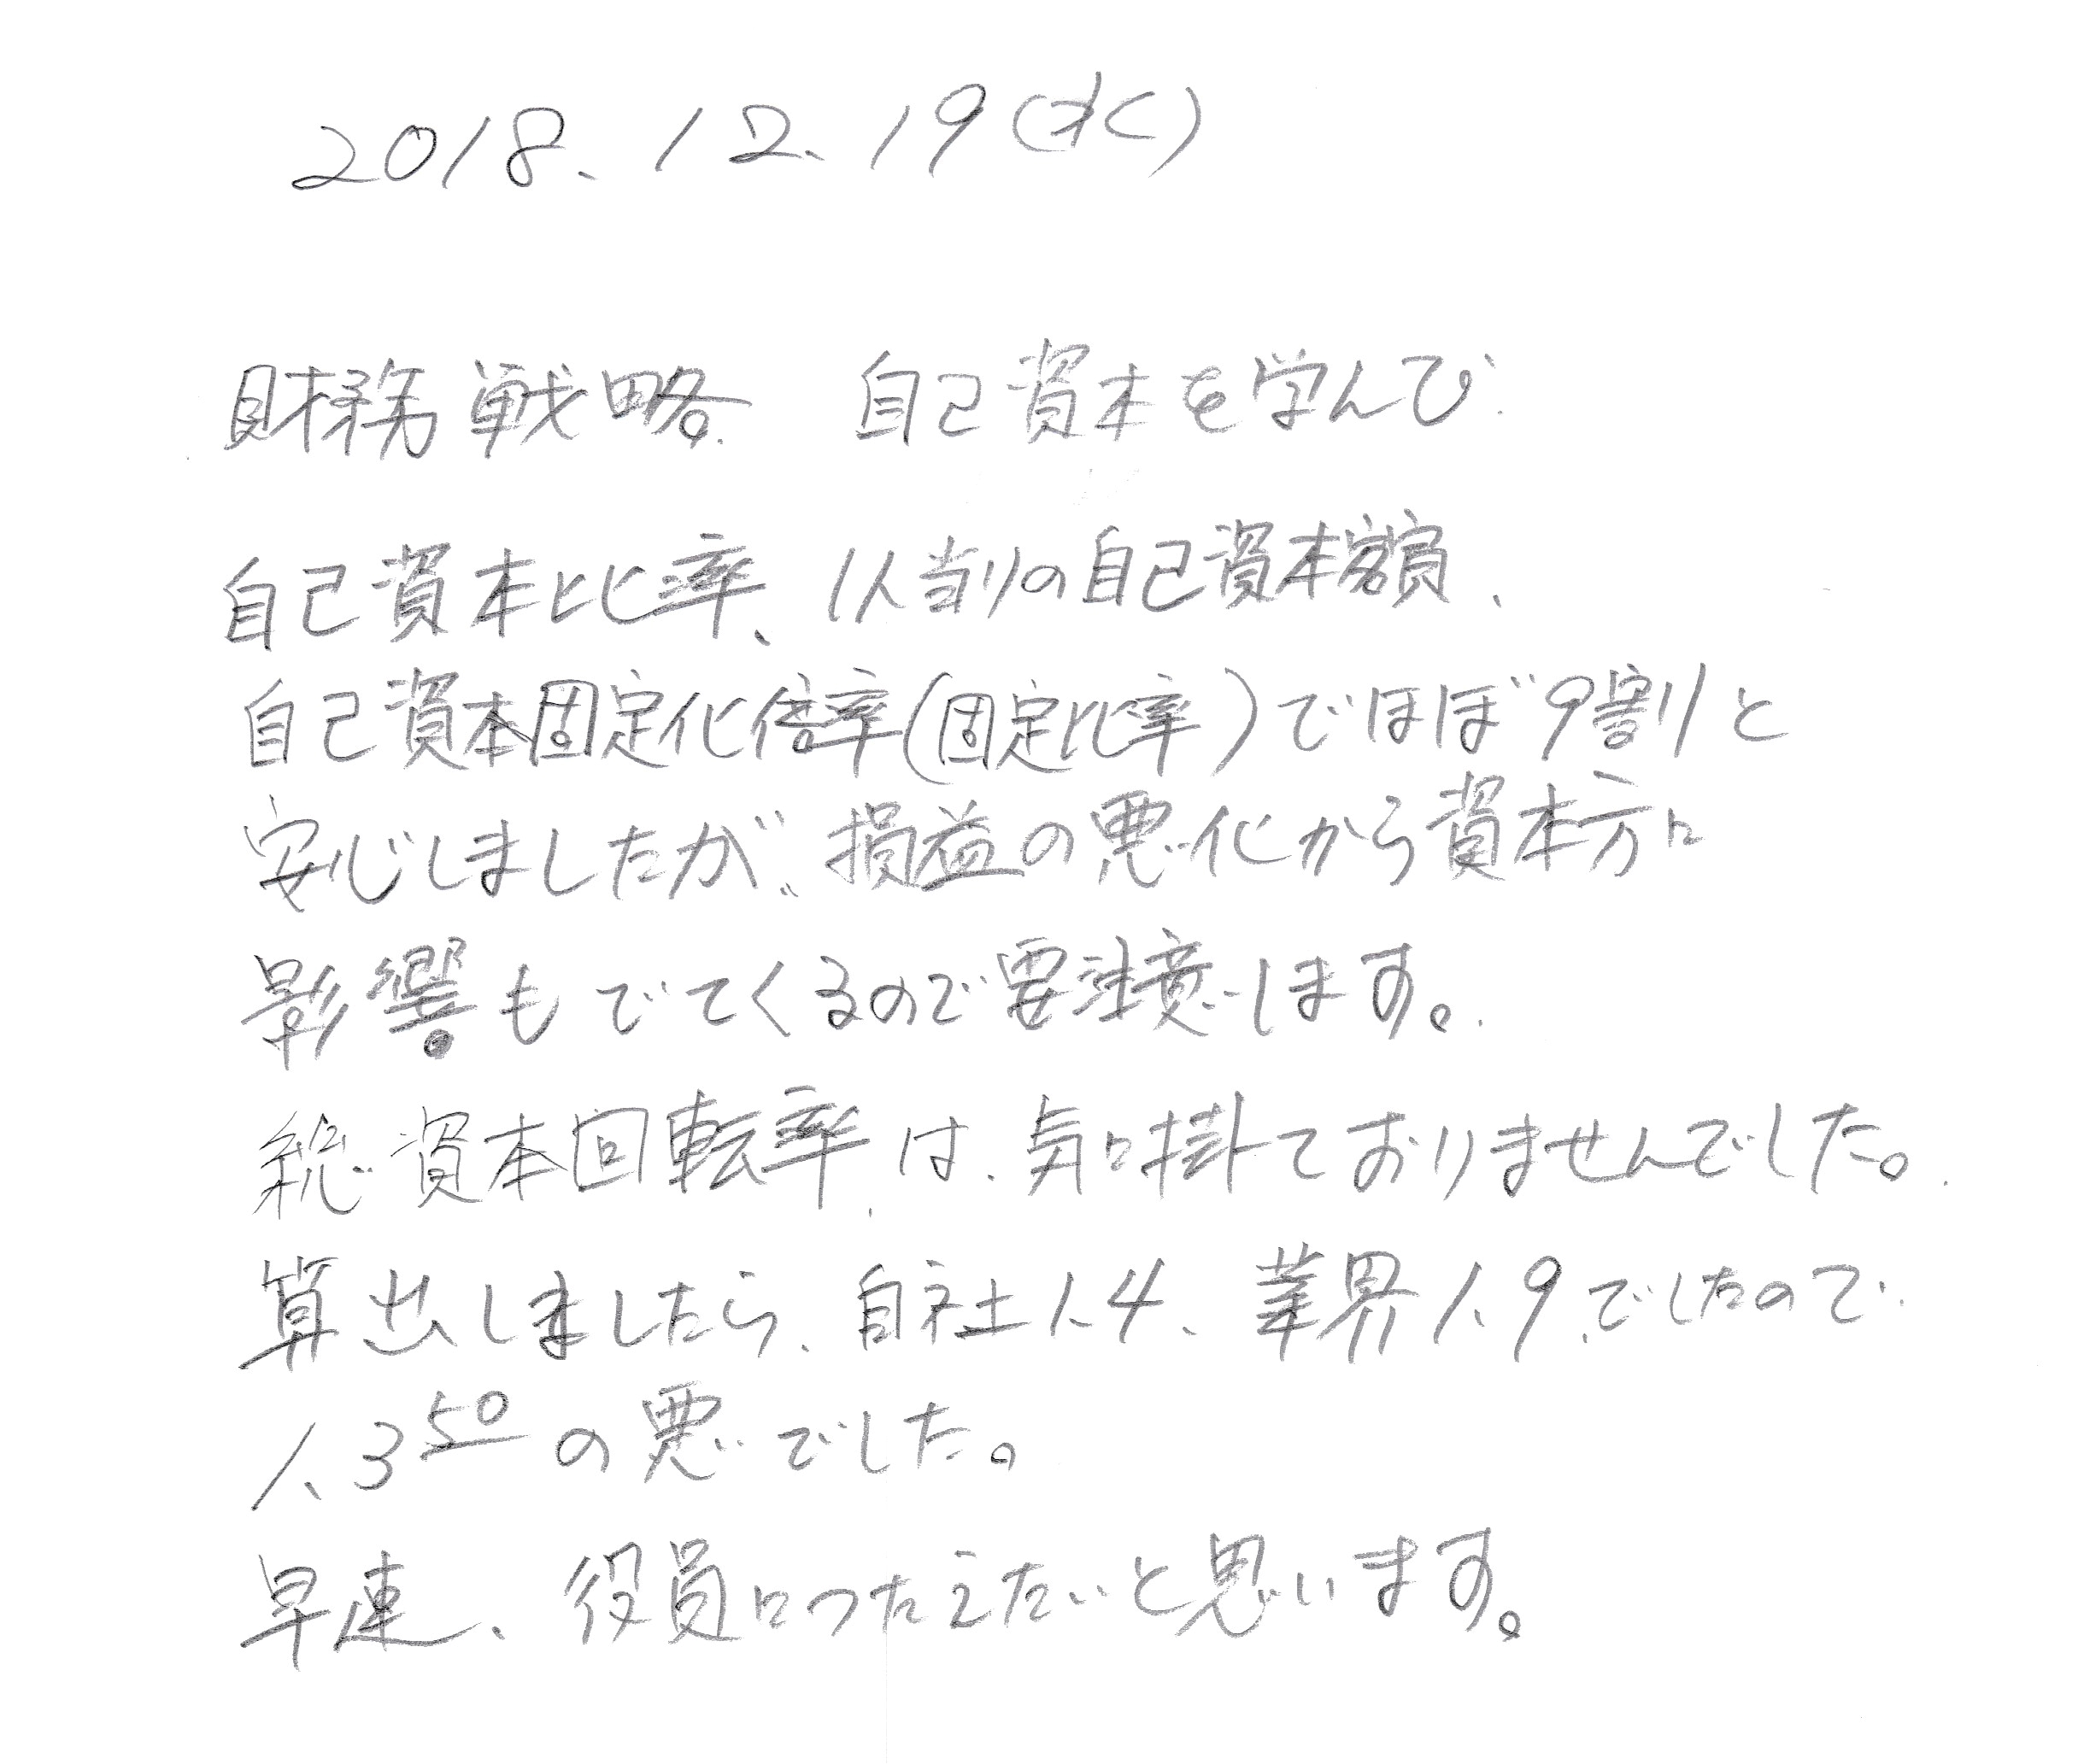 2018.12.19(水)
財務戦略　自己資本を学んび
自己資本比率、1人当りの自己資本額、
自己資本固定化倍率(固定比率)でほぼ9割と
安心しましたが、損益の悪化から資本方に
影響もでてくるので要注意します。
総資本回転率は、気に掛ておりませんでした。
算出しましたら、自社1.4、業界1.9でしたので
1.3 50 の悪でした。
早速、役員につたえたいと思います。